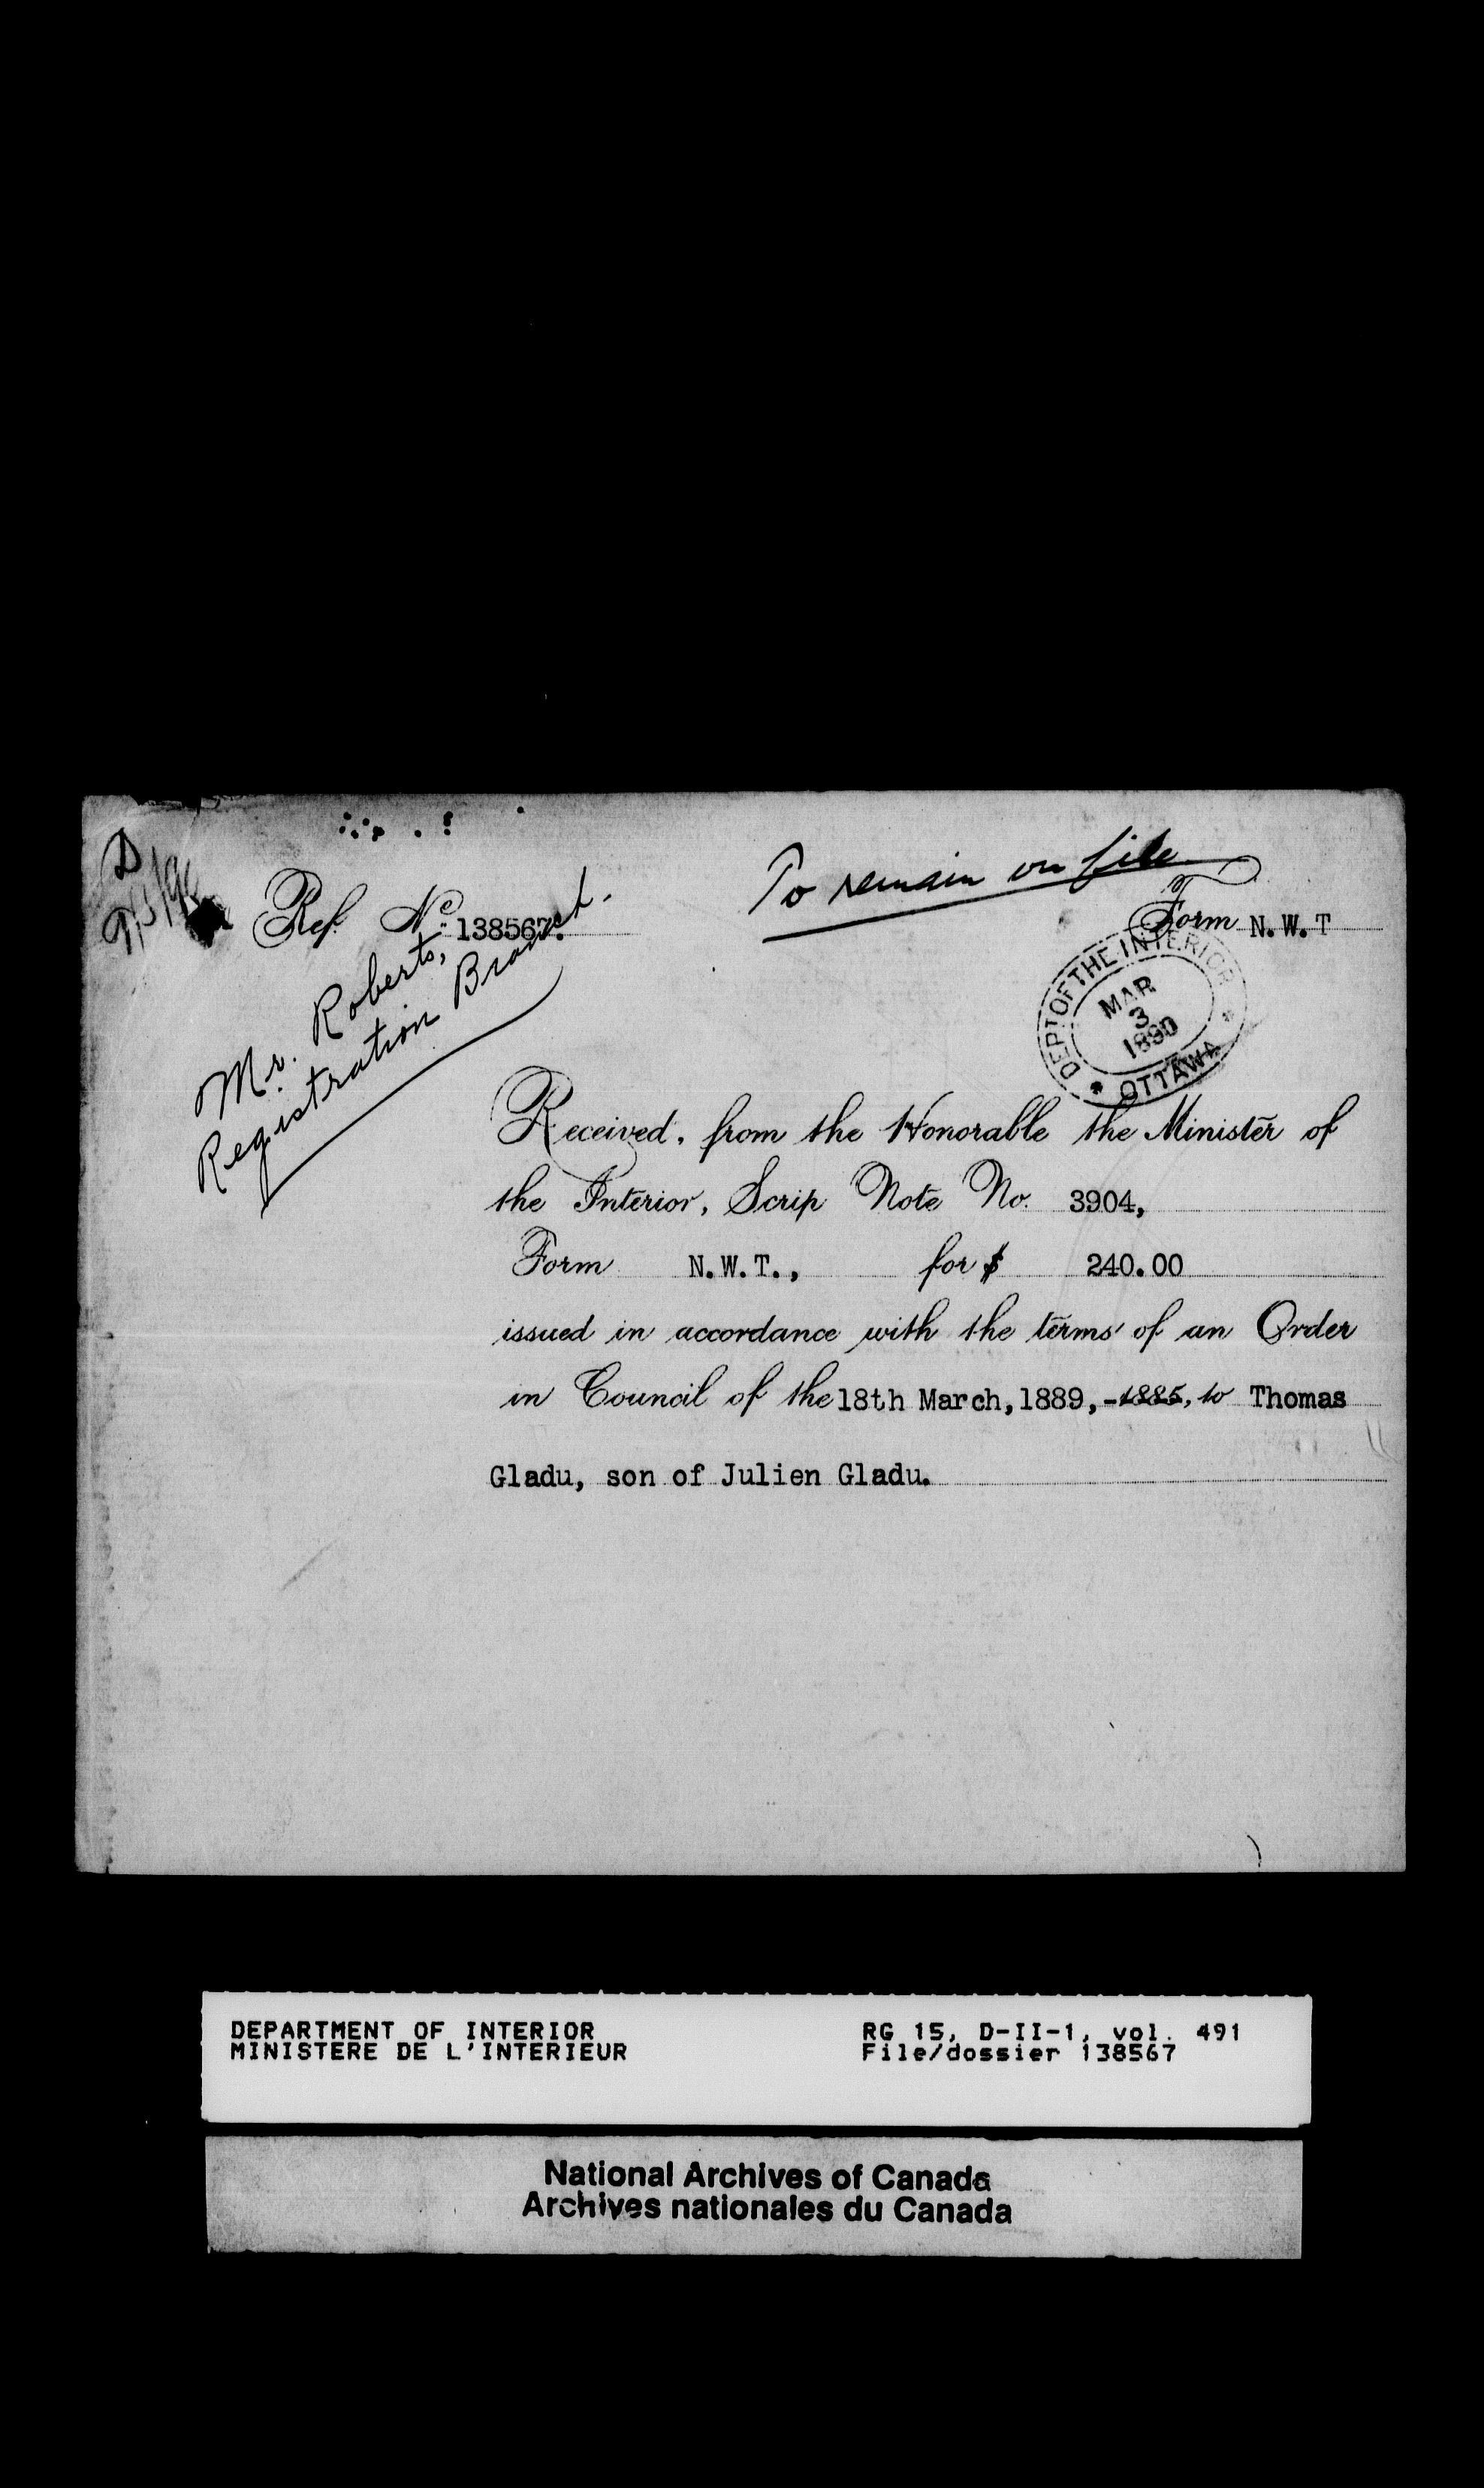 To remain on file
Ref. No. 138567.
Form N.W.T
Mr. Roberts,
Registration Branch.
DEPT OF THE INTERIOR
MAR
3
1890
OTTAWA
Received, from the Honorable the Minister of
the Interior, Scrip Note No. 3904,
Form N.W.T., for $ 240.00
issued in accordance with the terms of an Order
in Council of the 18th March, 1889, -1885, to Thomas
Gladu, son of Julien Gladu.
DEPARTMENT OF INTERIOR
MINISTERE DE L'INTERIEUR
RG 15, D-II-1, vol. 491
File/dossier 138567
National Archives of Canada
Archives nationales du Canada